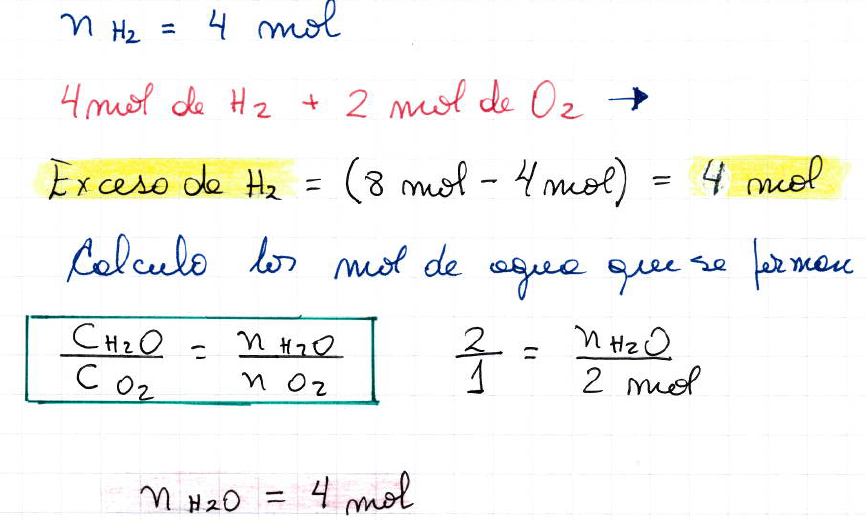 n H2 = 4 mol
4 mol de H2 + 2 mol de O2 →
Exceso de H2 = (8 mol - 4 mol) = 4 mol
Calculo los mol de agua que se forman
C H2O / C O2 = n H2O / n O2    2 / 1 = n H2O / 2 mol
n H2O = 4 mol